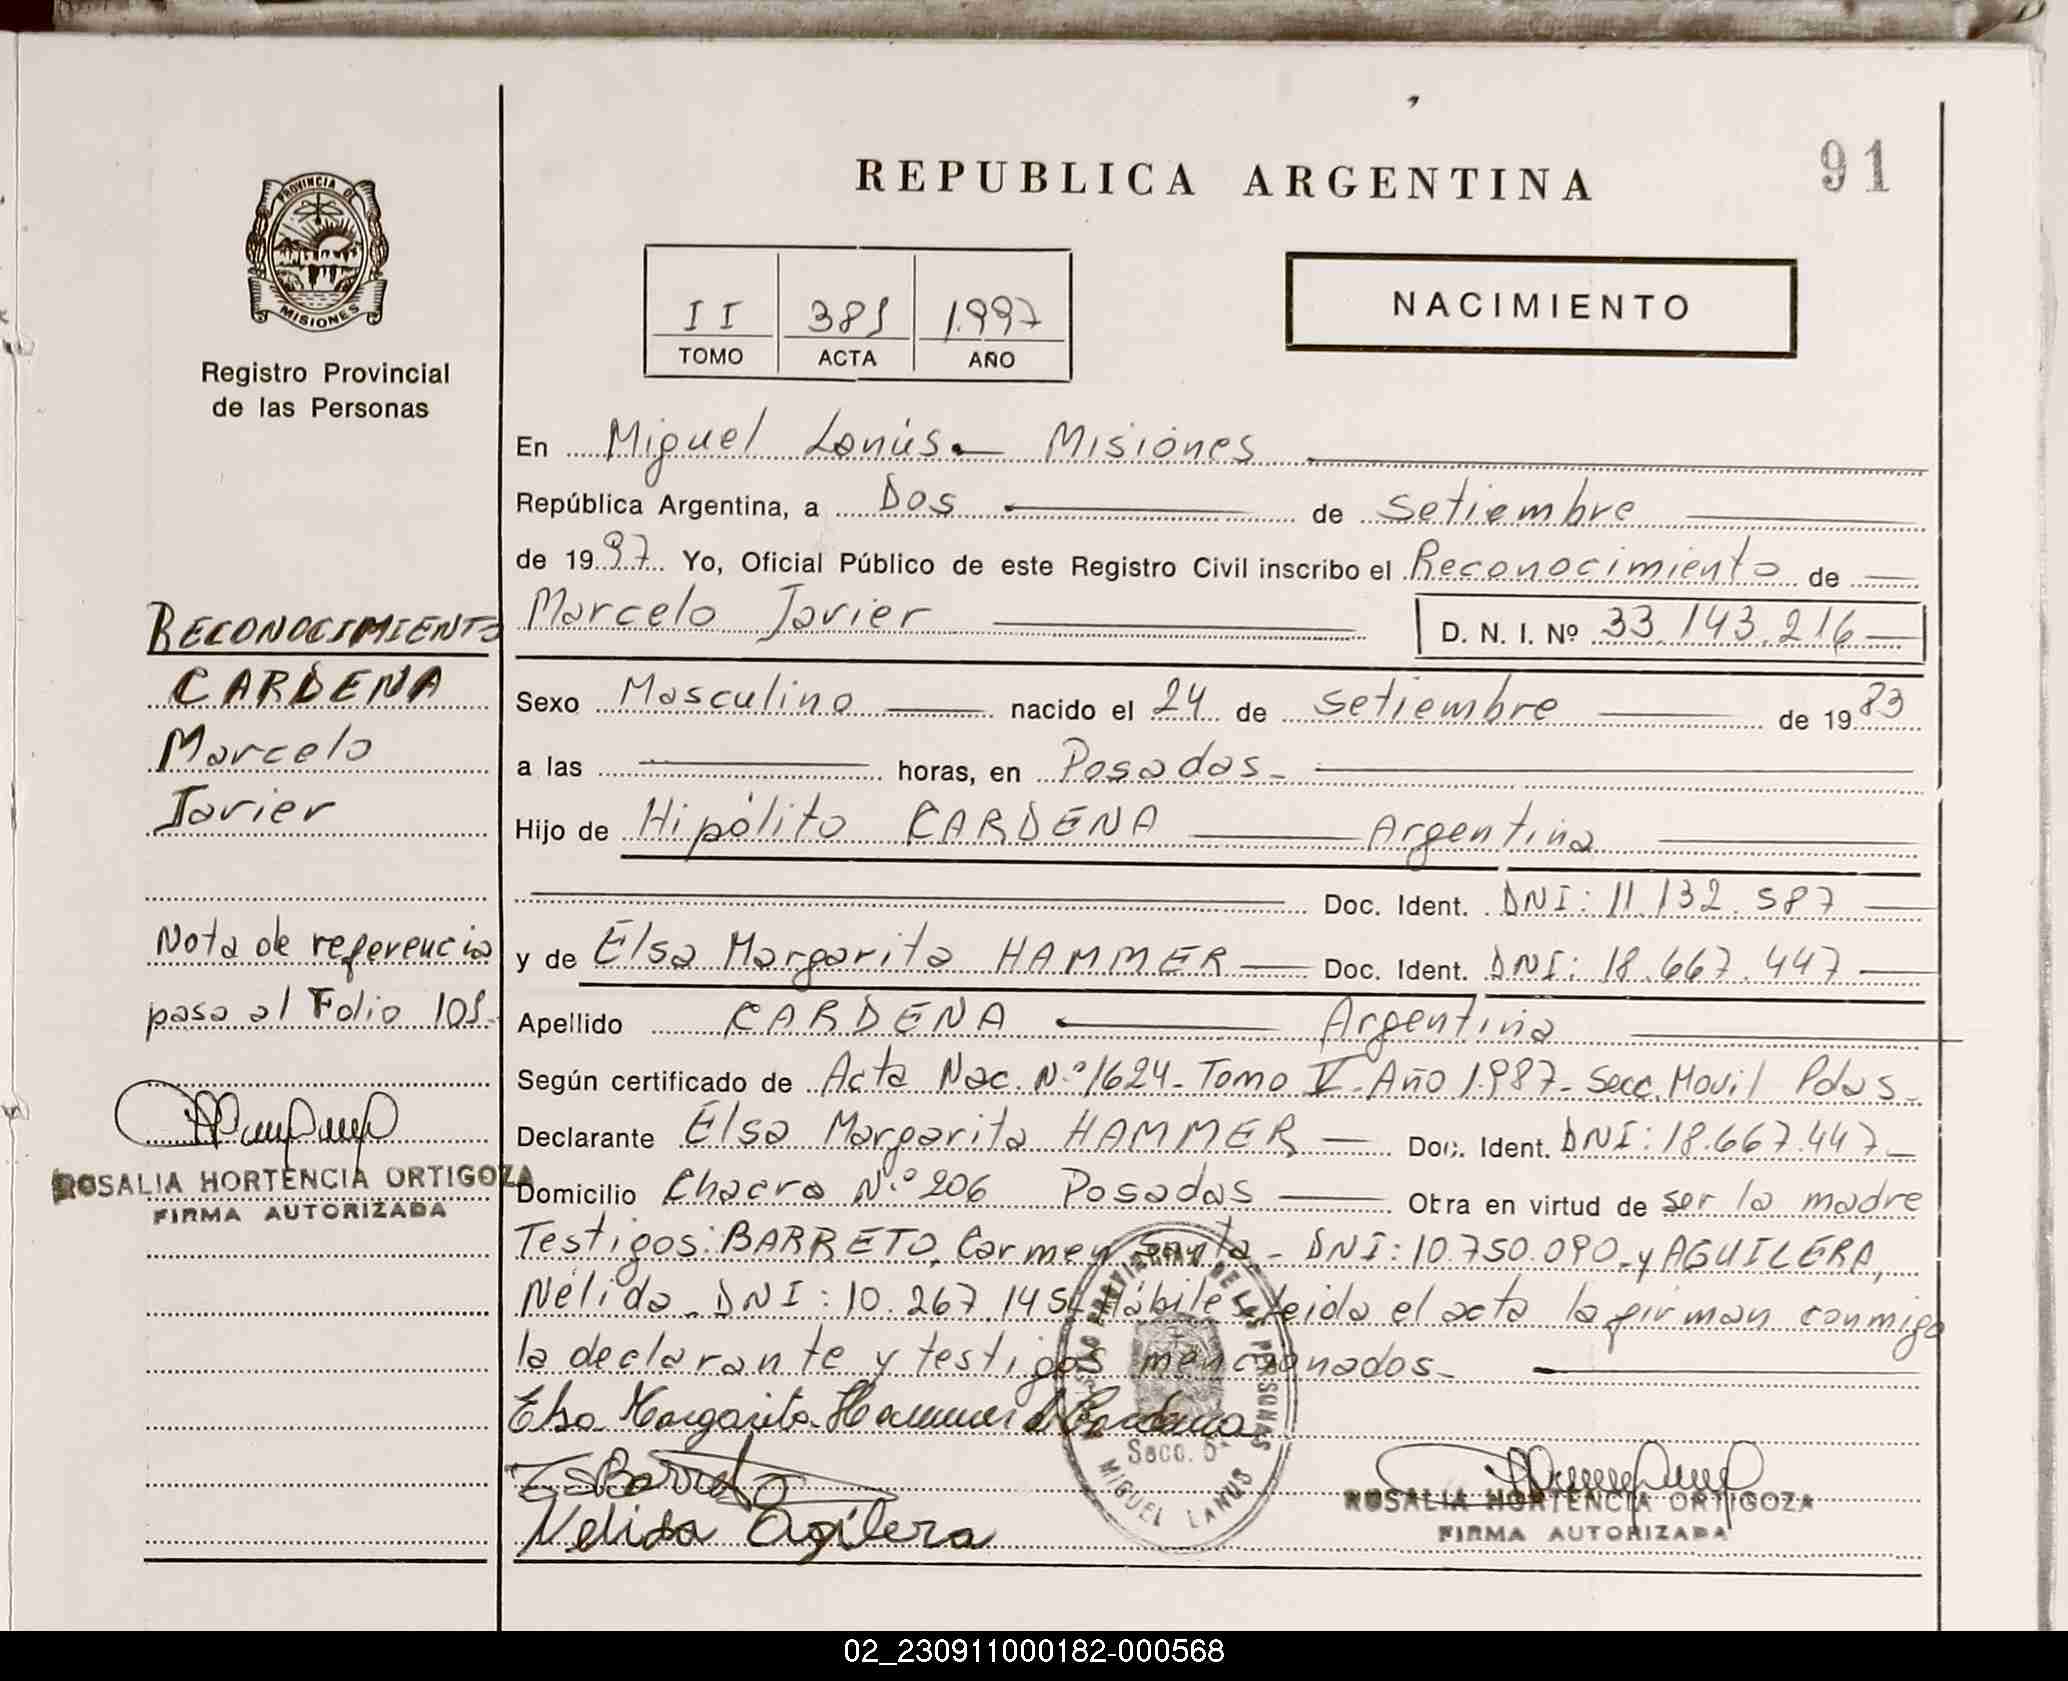 REPUBLICA ARGENTINA
91
PROVINCIA DE
MISIONES
Registro Provincial
de las Personas
II 381 1.997
TOMO ACTA AÑO
NACIMIENTO
En Miguel Lanús - Misiones
República Argentina, a Dos de setiembre
de 1997 Yo, Oficial Público de este Registro Civil inscribo el Reconocimiento de
Marcelo Javier D. N. I. Nº 33.143.216
Sexo Masculino nacido el 24 de setiembre de 1983
a las horas, en Posadas-
Hijo de Hipólito CARDENA Argentina
Doc. Ident. DNI: 11.132.587
y de Elsa Margarita HAMMER Doc. Ident. DNI: 18.667.447
Apellido CARDENA Argentina
Según certificado de Acta Nac. N.º 1624- Tomo V- Año 1.987- Secc. Movil Pdas-
Declarante Elsa Margarita HAMMER Doc. Ident. DNI: 18.667.447-
Domicilio Chacra N.º 206 Posadas Obra en virtud de ser la madre
Testigos: BARRETO, Carmen Santa- DNI: 10.750.090-y AGUILERA,
Nélida- DNI: 10.267.145- Hábiles leida el acta la firman conmigo
la declarante y testigos mencionados-
Elsa Margarita Hammer d Cardena
Barreto
Nelida Agilera
REGISTRO PROVINCIAL DE LAS PERSONAS
Secc. 5ª
MIGUEL LANUS
ROSALIA HORTENCIA ORTIGOZA
FIRMA AUTORIZADA
RECONOCIMIENTO
CARDENA
Marcelo
Javier
Nota de referencia
pasa al Folio 101-
ROSALIA HORTENCIA ORTIGOZA
FIRMA AUTORIZADA
02_230911000182-000568